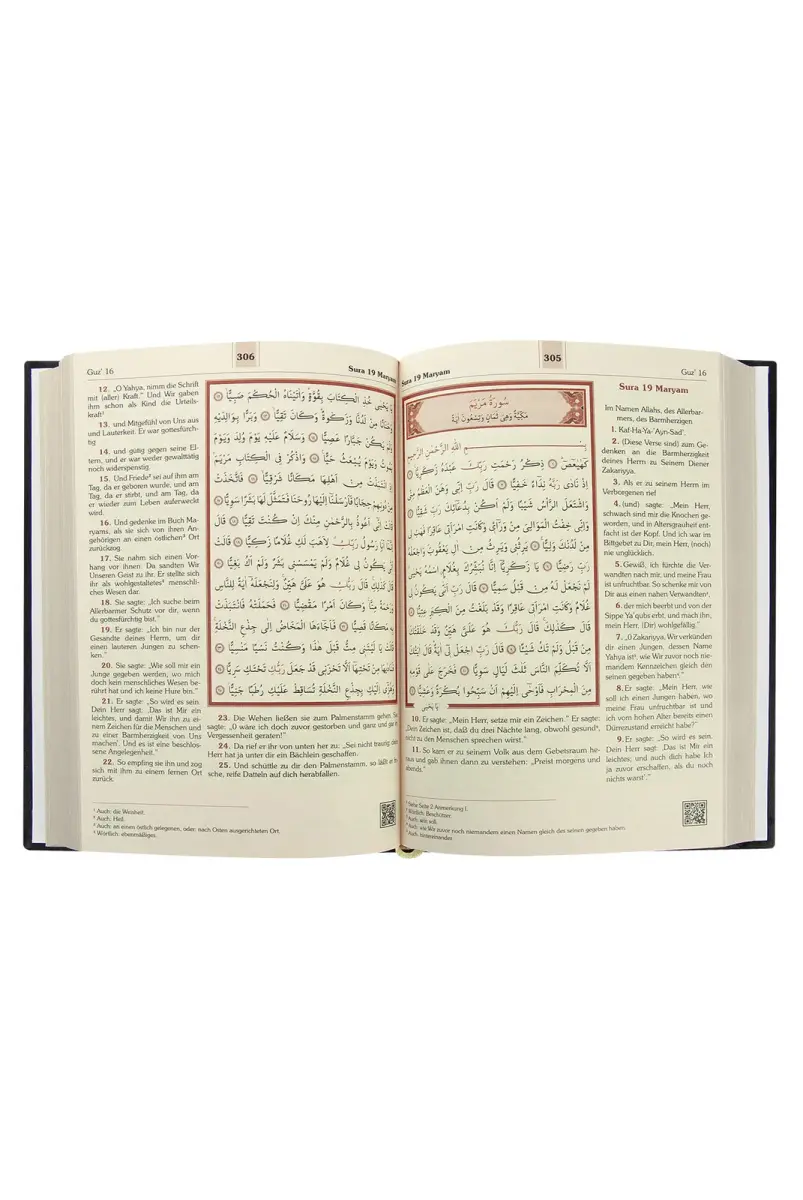 305
Guz' 16
Sura 19 Maryam
سُورَةُ مَرْيَمَ
مَكِّيَّةٌ وَهِىَ ثَمَانٍ وَتِسْعُونَ اٰيَةً
اللّٰهِ الرَّحْمٰنِ الرَّحِيمِ
كٓهٰيٰعٓصٓ ذِكْرُ رَحْمَتِ رَبِّكَ عَبْدَهُ زَكَرِيَّا
اِذْ نَادٰى رَبَّهُ نِدَٓاءً خَفِيًّا قَالَ رَبِّ اِنّٖى وَهَنَ الْعَظْمُ مِنّٖى
وَاشْتَعَلَ الرَّأْسُ شَيْبًا وَلَمْ اَكُنْ بِدُعَٓائِكَ رَبِّ شَقِيًّا
وَاِنّٖى خِفْتُ الْمَوَالِىَ مِنْ وَرَٓائٖى وَكَانَتِ امْرَاَتٖى عَاقِرًا فَهَبْ لٖى
مِنْ لَدُنْكَ وَلِيًّا يَرِثُنٖى وَيَرِثُ مِنْ اٰلِ يَعْقُوبَ وَاجْعَلْهُ
رَبِّ رَضِيًّا يَا زَكَرِيَّٓا اِنَّا نُبَشِّرُكَ بِغُلَامٍ اسْمُهُ يَحْيٰى
لَمْ نَجْعَلْ لَهُ مِنْ قَبْلُ سَمِيًّا قَالَ رَبِّ اَنّٰى يَكُونُ لٖى
غُلَامٌ وَكَانَتِ امْرَاَتٖى عَاقِرًا وَقَدْ بَلَغْتُ مِنَ الْكِبَرِ عِتِيًّا
قَالَ كَذٰلِكَ قَالَ رَبُّكَ هُوَ عَلَىَّ هَيِّنٌ وَقَدْ خَلَقْتُكَ
مِنْ قَبْلُ وَلَمْ تَكُ شَيْـًٔا قَالَ رَبِّ اجْعَلْ لٖٓى اٰيَةً قَالَ اٰيَتُكَ
اَلَّا تُكَلِّمَ النَّاسَ ثَلٰثَ لَيَالٍ سَوِيًّا فَخَرَجَ عَلٰى قَوْمِهٖ
مِنَ الْمِحْرَابِ فَاَوْحٰٓى اِلَيْهِمْ اَنْ سَبِّحُوا بُكْرَةً وَعَشِيًّا
يَا يَحْيٰى
Sura 19 Maryam
Im Namen Allahs, des Allerbar-
mers, des Barmherzigen
1. Kaf-Ha-Ya-'Ayn-Sad¹.
2. (Diese Verse sind) zum Ge-
denken an die Barmherzigkeit
deines Herrn zu Seinem Diener
Zakariyya.
3. Als er zu seinem Herrn im
Verborgenen rief
4. (und) sagte: „Mein Herr,
schwach sind mir die Knochen ge-
worden, und in Altersgrauheit ent-
facht ist der Kopf. Und ich war im
Bittgebet zu Dir, mein Herr, (noch)
nie unglücklich.
5. Gewiß, ich fürchte die Ver-
wandten nach mir, und meine Frau
ist unfruchtbar. So schenke mir von
Dir aus einen nahen Verwandten²,
6. der mich beerbt und von der
Sippe Ya'qubs erbt, und mach ihn,
mein Herr, (Dir) wohlgefällig."
7. „O Zakariyya, Wir verkünden
dir einen Jungen, dessen Name
Yahya ist³, wie Wir zuvor noch nie-
mandem Kennzeichen gleich den
seinen gegeben haben⁴."
8. Er sagte: „Mein Herr, wie
soll ich einen Jungen haben, wo
meine Frau unfruchtbar ist und
ich vom hohen Alter bereits einen
Dürrezustand erreicht habe?"
9. Er sagte: „So wird es sein.
Dein Herr sagt: ‚Das ist Mir ein
leichtes; und auch dich habe Ich
ja zuvor erschaffen, als du noch
nichts warst'."
10. Er sagte: „Mein Herr, setze mir ein Zeichen." Er sagte:
„Dein Zeichen ist, daß du drei Nächte lang, obwohl gesund⁵,
nicht zu den Menschen sprechen wirst."
11. So kam er zu seinem Volk aus dem Gebetsraum he-
raus und gab ihnen dann zu verstehen: „Preist morgens und
abends."
¹ Siehe Seite 2 Anmerkung 1.
² Wörtlich: Beschützer
³ Auch: sein soll.
⁴ Auch: wie Wir zuvor noch niemandem einen Namen gleich des seinen gegeben haben.
⁵ Auch: hintereinander.
306
Guz' 16
Sura 19 Maryam
يَا يَحْيٰى خُذِ الْكِتَابَ بِقُوَّةٍ وَاٰتَيْنَاهُ الْحُكْمَ صَبِيًّا
وَحَنَانًا مِنْ لَدُنَّا وَزَكٰوةً وَكَانَ تَقِيًّا وَبَرًّا بِوَالِدَيْهِ
وَلَمْ يَكُنْ جَبَّارًا عَصِيًّا وَسَلَامٌ عَلَيْهِ يَوْمَ وُلِدَ وَيَوْمَ
يَمُوتُ وَيَوْمَ يُبْعَثُ حَيًّا وَاذْكُرْ فِى الْكِتَابِ مَرْيَمَ
اِذِ انْتَبَذَتْ مِنْ اَهْلِهَا مَكَانًا شَرْقِيًّا فَاتَّخَذَتْ
مِنْ دُونِهِمْ حِجَابًا فَاَرْسَلْنَٓا اِلَيْهَا رُوحَنَا فَتَمَثَّلَ لَهَا بَشَرًا سَوِيًّا
قَالَتْ اِنّٖٓى اَعُوذُ بِالرَّحْمٰنِ مِنْكَ اِنْ كُنْتَ تَقِيًّا قَالَ
اِنَّمَٓا اَنَا رَسُولُ رَبِّكِ لِاَهَبَ لَكِ غُلَامًا زَكِيًّا قَالَتْ
اَنّٰى يَكُونُ لٖى غُلَامٌ وَلَمْ يَمْسَسْنٖى بَشَرٌ وَلَمْ اَكُ بَغِيًّا
قَالَ كَذٰلِكِ قَالَ رَبُّكِ هُوَ عَلَىَّ هَيِّنٌ وَلِنَجْعَلَهُٓ اٰيَةً لِلنَّاسِ
وَرَحْمَةً مِنَّا وَكَانَ اَمْرًا مَقْضِيًّا فَحَمَلَتْهُ فَانْتَبَذَتْ
بِهٖ مَكَانًا قَصِيًّا فَاَجَٓاءَهَا الْمَخَاضُ اِلٰى جِذْعِ النَّخْلَةِ
قَالَتْ يَا لَيْتَنٖى مِتُّ قَبْلَ هٰذَا وَكُنْتُ نَسْيًا مَنْسِيًّا
فَنَادٰيهَا مِنْ تَحْتِهَٓا اَلَّا تَحْزَنٖى قَدْ جَعَلَ رَبُّكِ تَحْتَكِ سَرِيًّا
وَهُزّٖٓى اِلَيْكِ بِجِذْعِ النَّخْلَةِ تُسَاقِطْ عَلَيْكِ رُطَبًا جَنِيًّا
12. „O Yahya, nimm die Schrift
mit (aller) Kraft." Und Wir gaben
ihm schon als Kind die Urteils-
kraft¹
13. und Mitgefühl von Uns aus
und Lauterkeit. Er war gottesfürch-
tig
14. und gütig gegen seine El-
tern, und er war weder gewalttätig
noch widerspenstig.
15. Und Friede² sei auf ihm am
Tag, da er geboren wurde, und am
Tag, da er stirbt, und am Tag, da
er wieder zum Leben auferweckt
wird.
16. Und gedenke im Buch Ma-
ryams, als sie sich von ihren An-
gehörigen an einen östlichen³ Ort
zurückzog.
17. Sie nahm sich einen Vor-
hang vor ihnen. Da sandten Wir
Unseren Geist zu ihr. Er stellte sich
ihr als wohlgestaltetes⁴ menschli-
ches Wesen dar.
18. Sie sagte: „Ich suche beim
Allerbarmer Schutz vor dir, wenn
du gottesfürchtig bist."
19. Er sagte: „Ich bin nur der
Gesandte deines Herrn, um dir
einen lauteren Jungen zu schen-
ken."
20. Sie sagte: „Wie soll mir ein
Junge gegeben werden, wo mich
doch kein menschliches Wesen be-
rührt hat und ich keine Hure bin."
21. Er sagte: „So wird es sein.
Dein Herr sagt: ‚Das ist Mir ein
leichtes, und damit Wir ihn zu ei-
nem Zeichen für die Menschen und
zu einer Barmherzigkeit von Uns
machen'. Und es ist eine beschlos-
sene Angelegenheit."
22. So empfing sie ihn und zog
sich mit ihm zu einem fernen Ort
zurück.
23. Die Wehen ließen sie zum Palmenstamm gehen. Sie
sagte: „O wäre ich doch zuvor gestorben und ganz und gar in
Vergessenheit geraten!"
24. Da rief er ihr von unten her zu: „Sei nicht traurig, dein
Herr hat ja unter dir ein Bächlein geschaffen.
25. Und schüttle zu dir den Palmenstamm, so läßt er fri-
sche, reife Datteln auf dich herabfallen.
¹ Auch: die Weisheit.
² Auch: Heil.
³ Auch: an einen östlich gelegenen, oder: nach Osten ausgerichteten Ort.
⁴ Wörtlich: ebenmäßiges.